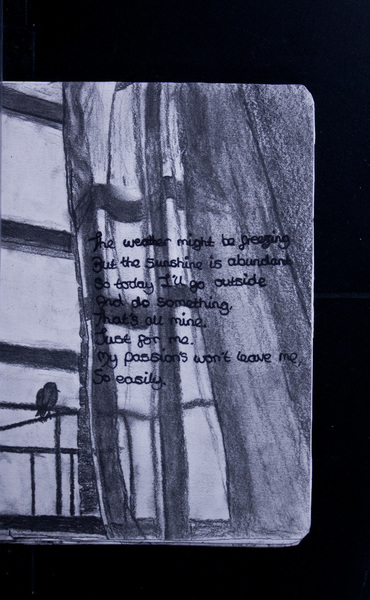 The weather might be freezing
But the sunshine is abundant
So today I'll go outside
And do something,
That's all mine.
Just for me.
My passion's won't leave me,
So easily.